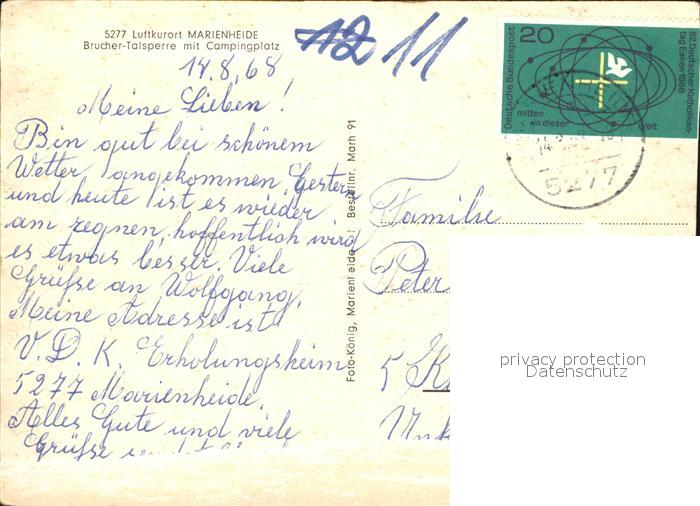 5277 Luftkurort MARIENHEIDE
Brucher-Talsperre mit Campingplatz
12 11
14.8.68
Meine Lieben!
Bin gut bei schönem
Wetter angekommen. Gestern
und heute ist es wieder
am regnen, hoffentlich wird
es etwas besser. Viele
Grüße an Wolfgang.
Meine Adresse ist
V. D. K. Erholungsheim
5277 Marienheide.
Alles Gute und viele
Grüße
Foto-König, Marienheide Bestellnr. Marh 91
Deutsche Bundespost
20
82. Deutscher Katholiken-
tag Essen 1968
mitten
in dieser
Welt
5277
Familie
Peter
5 K
privacy protection
Datenschutz